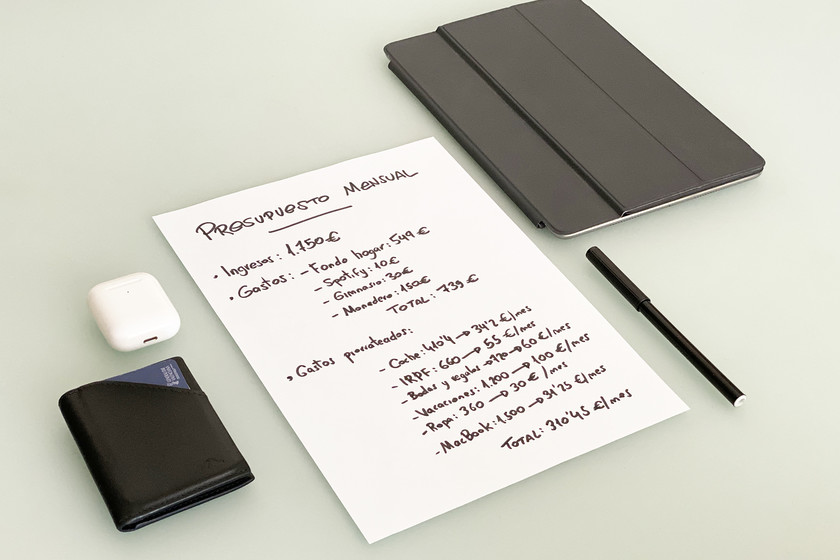 PRESUPUESTO MENSUAL
• Ingresos: 1.750€
• Gastos: - Fondo hogar: 549€
- Spotify: 10€
- Gimnasio: 30€
- Monedero: 150€
TOTAL: 739€
• Gastos prorrateados:
- Coche: 410'4 → 34'2 €/mes
- IRPF: 660 → 55 €/mes
- Bodas y regalos → 720 → 60€/mes
- Vacaciones: 1.200 → 100 €/mes
- Ropa: 360 → 30 €/mes
- MacBook: 1.500 → 31'25 €/mes
TOTAL: 310'45 €/mes